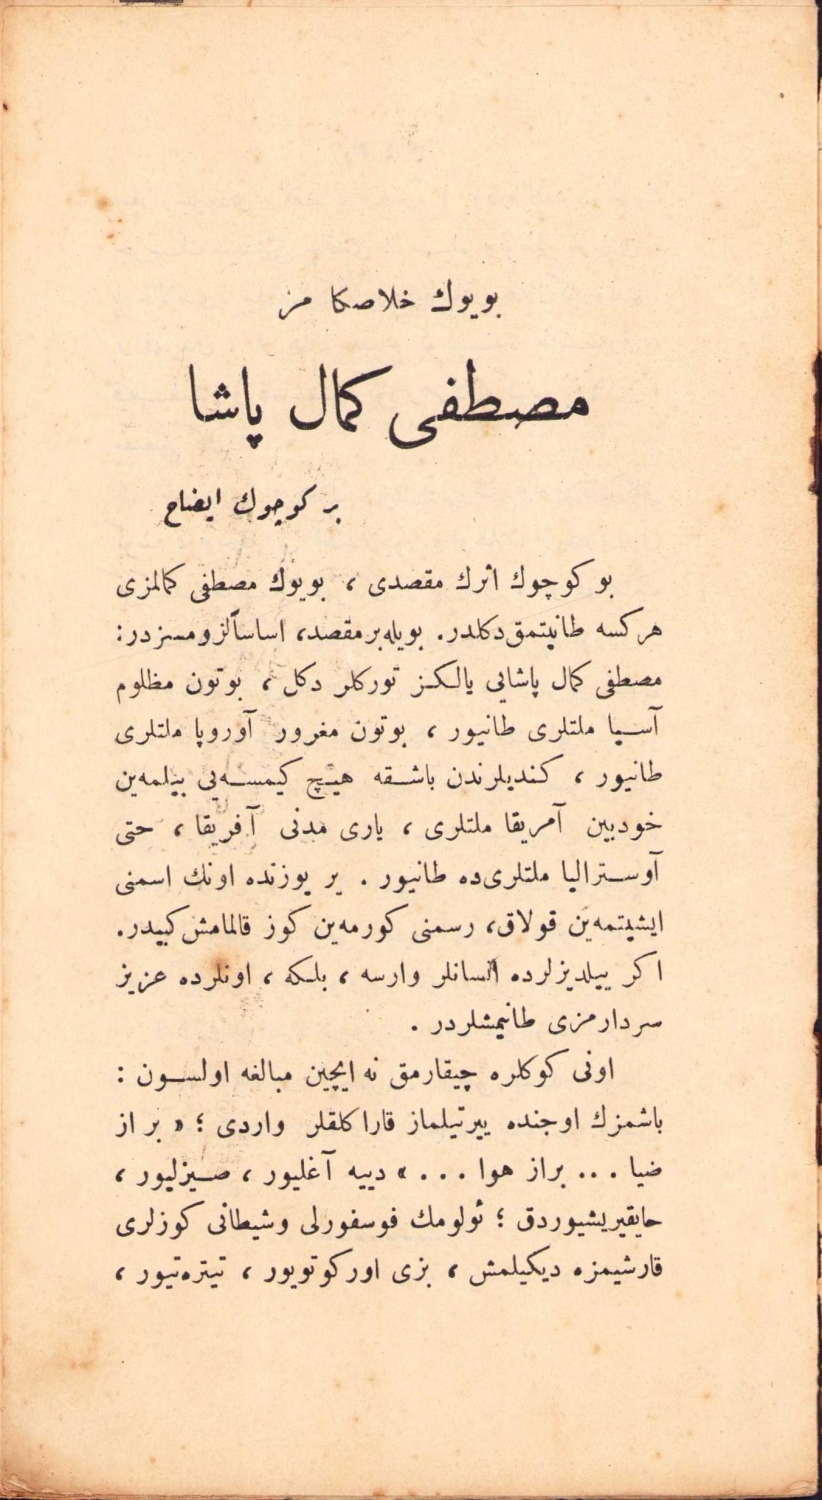 بویوك خلاصكا مز
مصطفی کمال پاشا
بر کوچوك ایضاح
بو کوچوك اثرك مقصدی ، بویوك مصطفی کمالمزی
هرکسه طانیتمق دکلدر. بویله بر مقصد، اساساً لزومسزدر:
مصطفی کمال پاشایی یالکز تورکلر دکل ، بوتون مظلوم
آسیا ملتلری طانیور ، بوتون مغرور آوروپا ملتلری
طانیور ، کندیلرندن باشقه هیچ کیمسه‌یی بیلمه‌ین
خودبین آمریقا ملتلری ، یاری مدنی آفریقا ، حتی
آوسترالیا ملتلری‌ده طانیور . یر یوزنده اونك اسمنی
ایشیتمه‌ین قولاق، رسمنی کورمه‌ین کوز قالمامش کبیدر.
اکر ییلدیزلرده انسانلر وارسه ، بلکه ، اونلرده عزیز
سردارمزی طانیمشلردر .
اونی کوکلره چیقارمق نه ایچین مبالغه اولسون :
باشمزك اوجنده ییرتیلماز قاراکلقلر واردی ؛ « بر از
ضیا ... براز هوا ... » دییه آغلیور ، صیزلیور ،
حایقیریشیوردق ؛ ئولومك فوسفورلی وشیطانی کوزلری
قارشیمزه دیکیلمش ، بزی اورکوتویور ، تیتره‌تیور ،